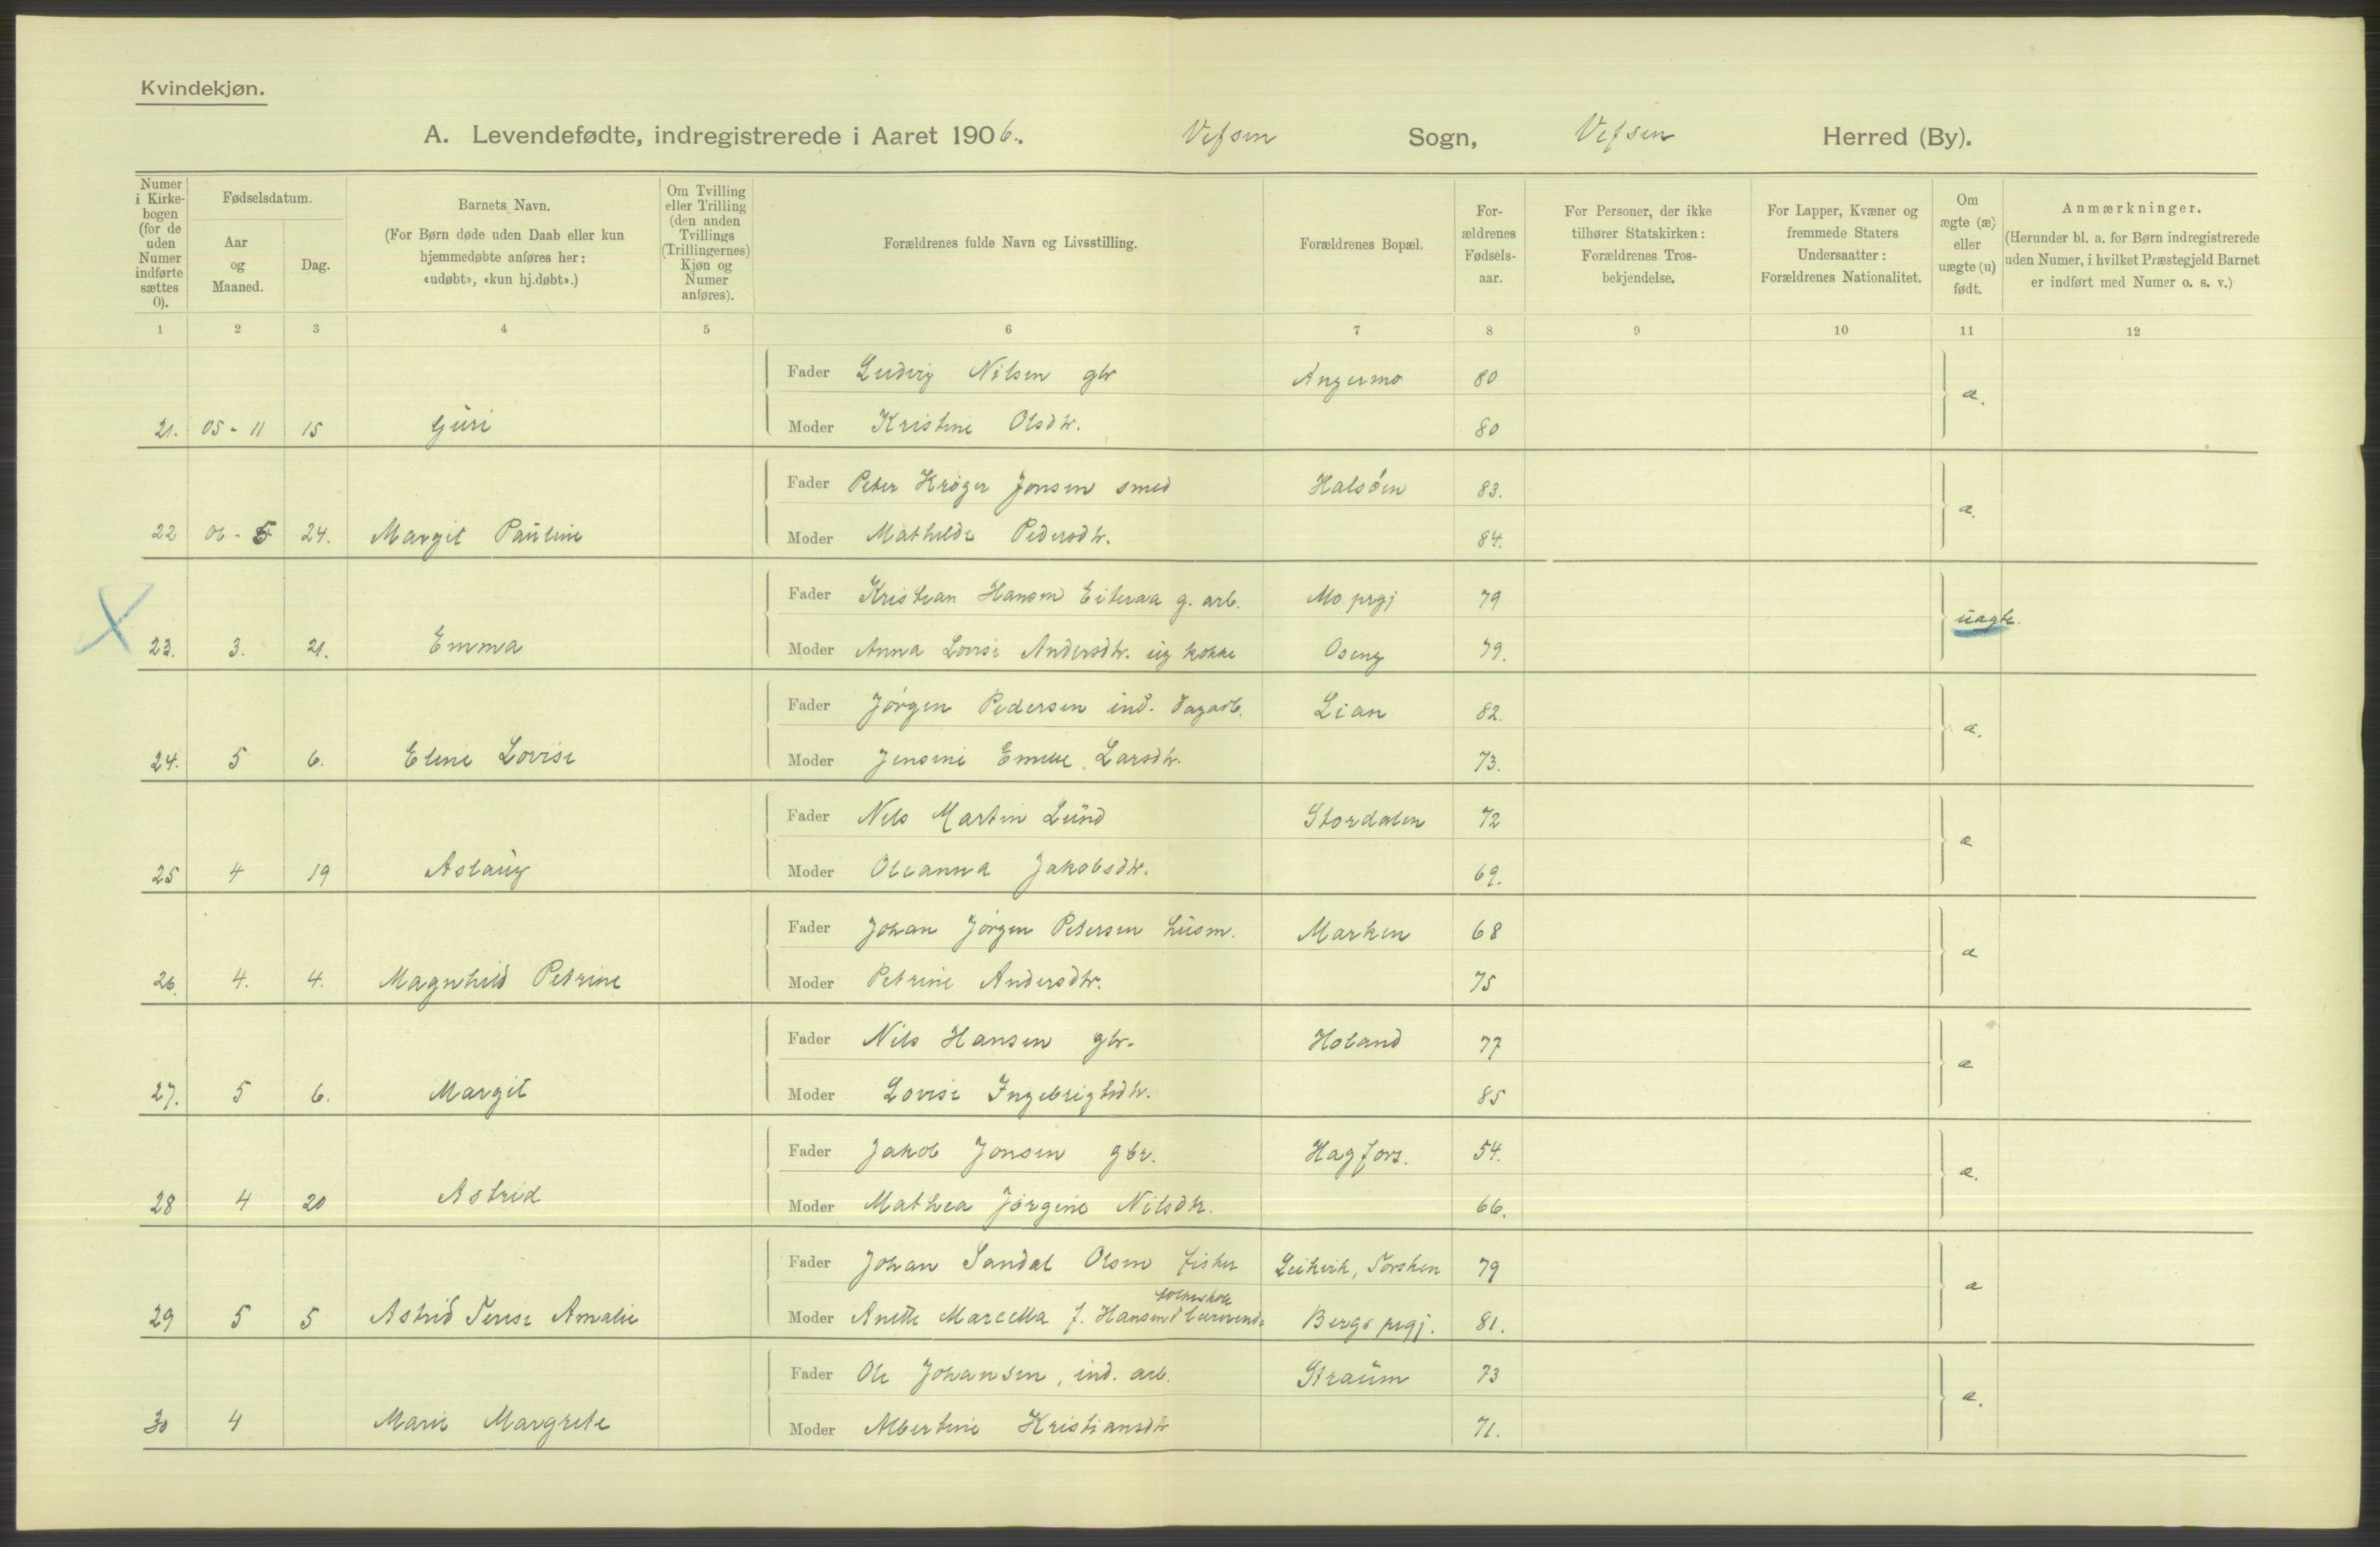 Kvindekjøn.
A. Levendefødte, indregistrerede i Aaret 1906. Vefsen Sogn, Vefsen Herred (By).
Numer i Kirkebogen (for de uden Numer indførte sættes 0).
Fødselsdatum.
Aar og Maaned.
Dag.
Barnets Navn.
(For Børn døde uden Daab eller kun hjemmedøbte anføres her: «udøbt», «kun hj.døbt».)
Om Tvilling eller Trilling (den anden Tvillings (Trillingernes) Kjøn og Numer anføres).
Forældrenes fulde Navn og Livsstilling.
Forældrenes Bopæl.
Forældrenes Fødselsaar.
For Personer, der ikke tilhører Statskirken: Forældrenes Trosbekjendelse.
For Lapper, Kvæner og fremmede Staters Undersaatter: Forældrenes Nationalitet.
Om ægte (æ) eller uægte (u) født.
Anmærkninger.
(Herunder bl. a. for Børn indregistrerede uden Numer, i hvilket Præstegjeld Barnet er indført med Numer o. s. v.)
1 2 3 4 5 6 7 8 9 10 11 12
Fader Ludvig Nilsen gbr Angermo 80 æ.
21. 05 - 11 15 Guri Moder Kristine Olsdtr. 80
Fader Peter Krøger Jonsen smed Halsøen 83. æ.
22 06 - 5 24. Margit Pauline Moder Mathilde Pedersdtr. 84.
Fader Kristian Hansen Eiteraa g. arb. Mo prgj 79 uægte.
23. 3. 21. Emma Moder Anna Lovise Andersdtr. ug kokke Oseng 79.
Fader Jørgen Pedersen ind. dagarb. Lian 82. æ.
24. 5 6. Eline Lovise Moder Jensine Emelie Larsdtr. 73.
Fader Nils Martin Lund Stordalen 72 æ
25 4 19 Aslaug Moder Oleanna Jakobsdtr. 69.
Fader Johan Jørgen Petersen husm. Marken 68 æ
26. 4. 4. Magnhild Petrine Moder Petrine Andersdtr. 75
Fader Nils Hansen gbr. Holand 77 æ
27. 5 6. Margit Moder Lovise Ingebrigtsdtr. 85
Fader Jakob Jonsen gbr. Hagfors. 54. æ.
28 4 20 Astrid Moder Mathea Jørgine Nilsdtr. 66.
Fader Johan Sandal Olsen fisker Leikvik, Torsken 79 æ
29 5 5 Astrid Terese Amalie Moder Anette Marcella f. Hansen folkeskole lærerinde Bergs prgj. 81.
Fader Ole Johansen, ind. arb. Straum 73 æ.
30 4 Marie Margrete Moder Albertine Kristiansdtr 71.